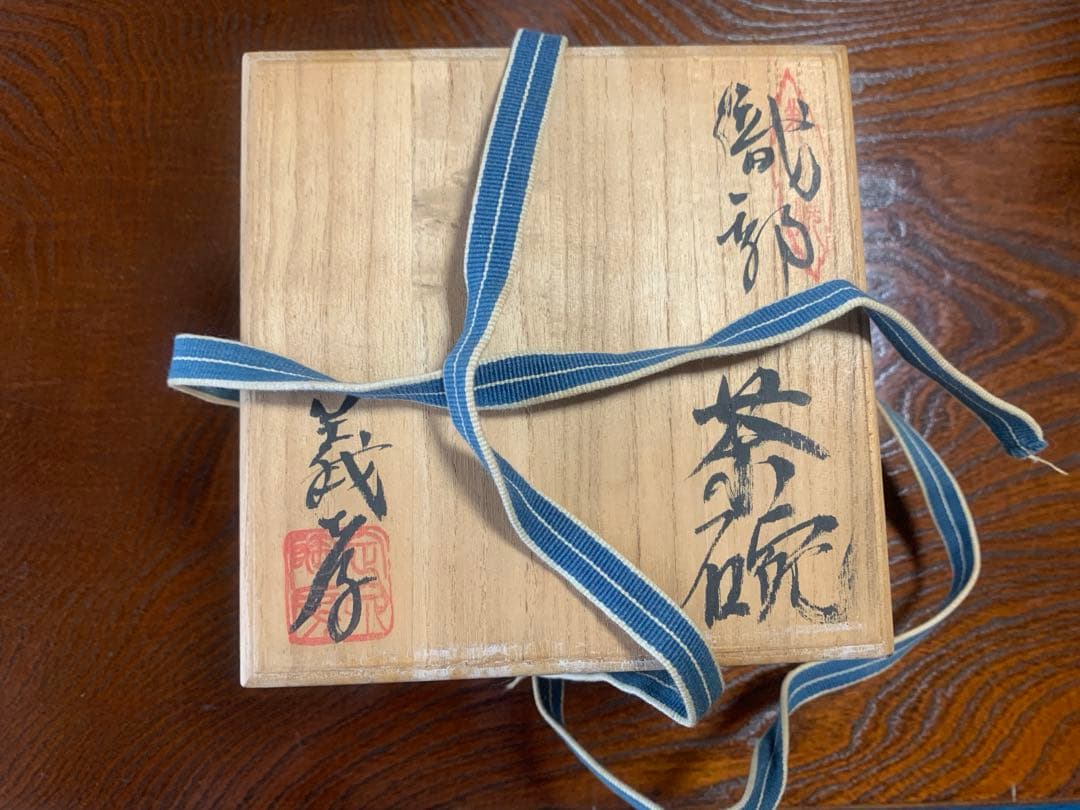 織部
茶碗
義孝